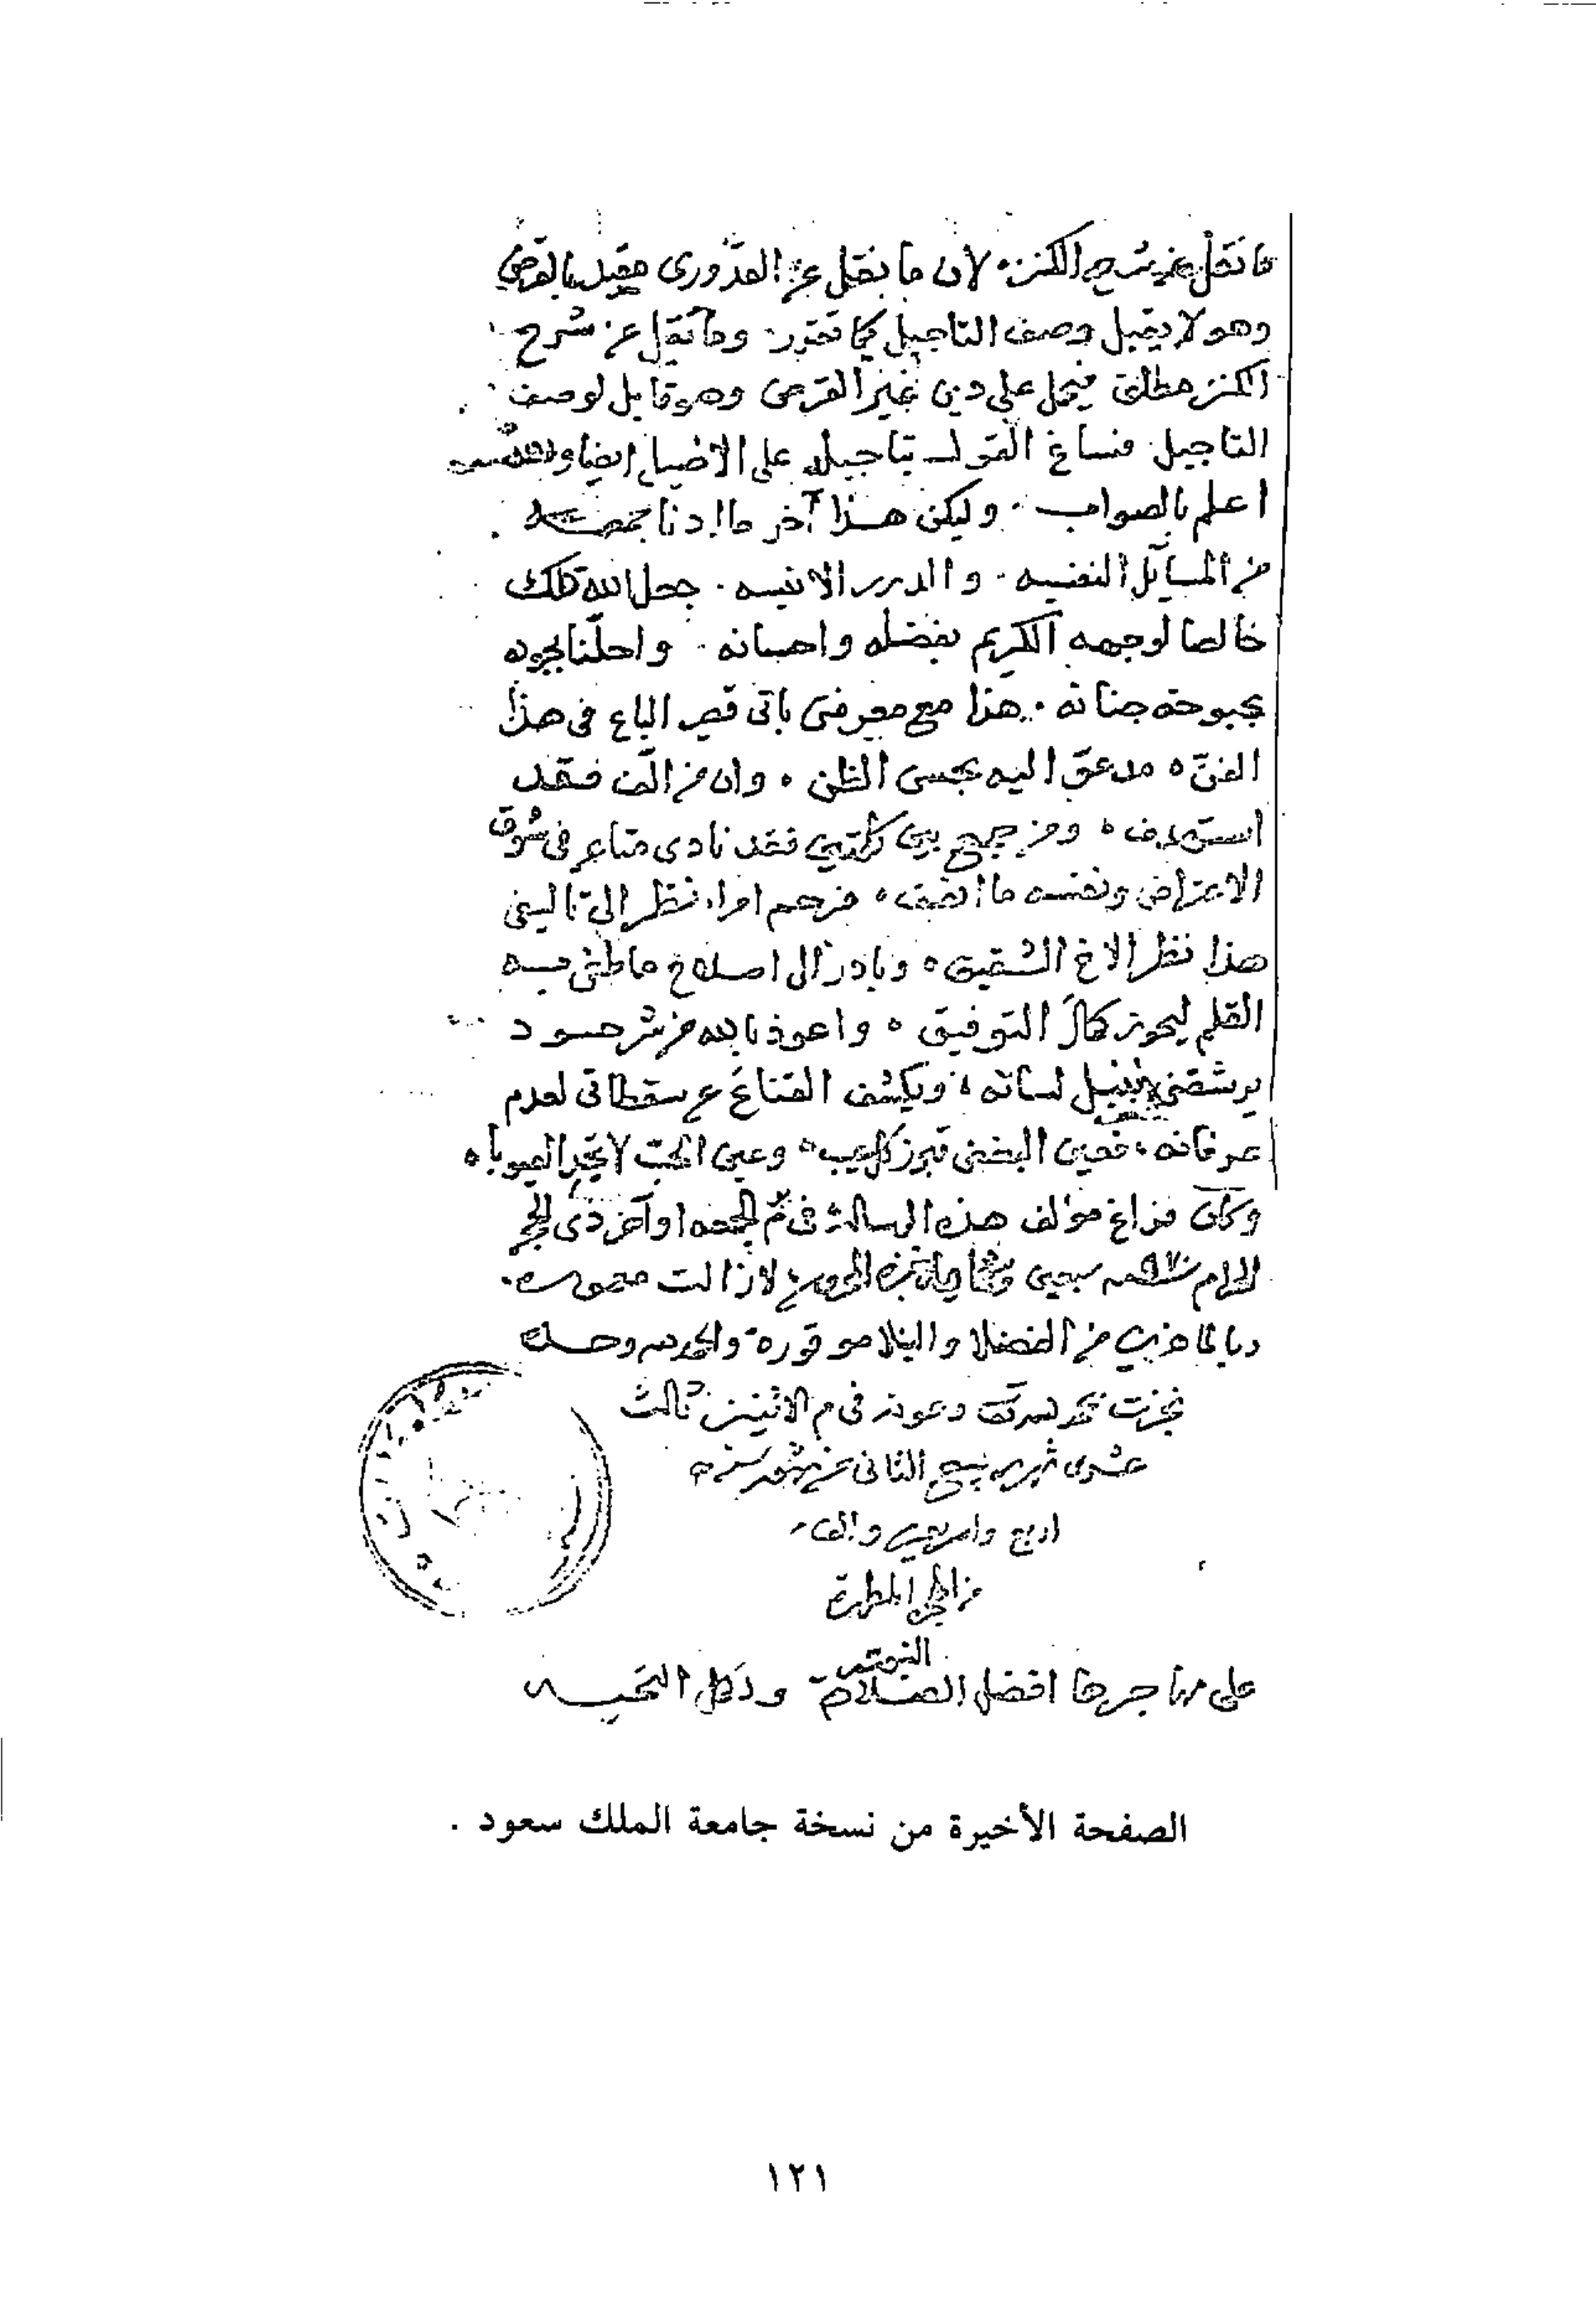 ما نقل عن شرح الكنز لان ما نقل عن القدورى مقيد بالقرض
وهو لا يقبل وصف التاجيل كما تقرر وما نقل عن شرح
الكنز مطلق فيحمل على دين غير القرض وهو قابل لوصف
التاجيل فساغ القول بتاجيله على ايضا والله
اعلم بالصواب وليكن هذا آخر ما اردنا جمعه
من المسآئل النفيسه والدرر الانيسه جعل الله ذلك
خالصا لوجهه الكريم بفضله واحسانه واحلّنا بجوده
بحبوحة جنانه هذا مع معرفتى بانى قصير الباع فى هذا
الفنّ اليه بحسن الظن وان من الّف فقد
استهدف ومن جمع بين كلمتين فقد نادى متاعه فى سوق
الاعتراض ونفسه ما انصف فرحم امراء نظر الى تاليفى
هذا نظر الاخ الشقيق وبادر الى اصلاح ما طغى به
القلم ليحوز كمال التوفيق واعوذ بالله من شر حسود
يرشقنى بنبل لسانه ويكشف القناع عن سقطاتى لعدم
عرفانه فعين البغض تبرز كل عيب وعين الحب لا تجد العيوبا
وكان فراغ مؤلف هذه الرسالة فى يوم الجمعه اواخر ذى الحجه
الحرام سنه ٩٧٠ سبعين لا زالت معموره
من الفضلا والنبلا موقورة والحمد لله وحده
نجزت بحمد الله وعونه فى يوم الاثنين ثالث
عشرى شهر ربيع الثانى من شهور سنة
اربع واربعين والف
من الهجرة المطهرة
النبوية
على مهاجرها افضل الصلاة وكل التحيه
الصفحة الأخيرة من نسخة جامعة الملك سعود .
١٢١